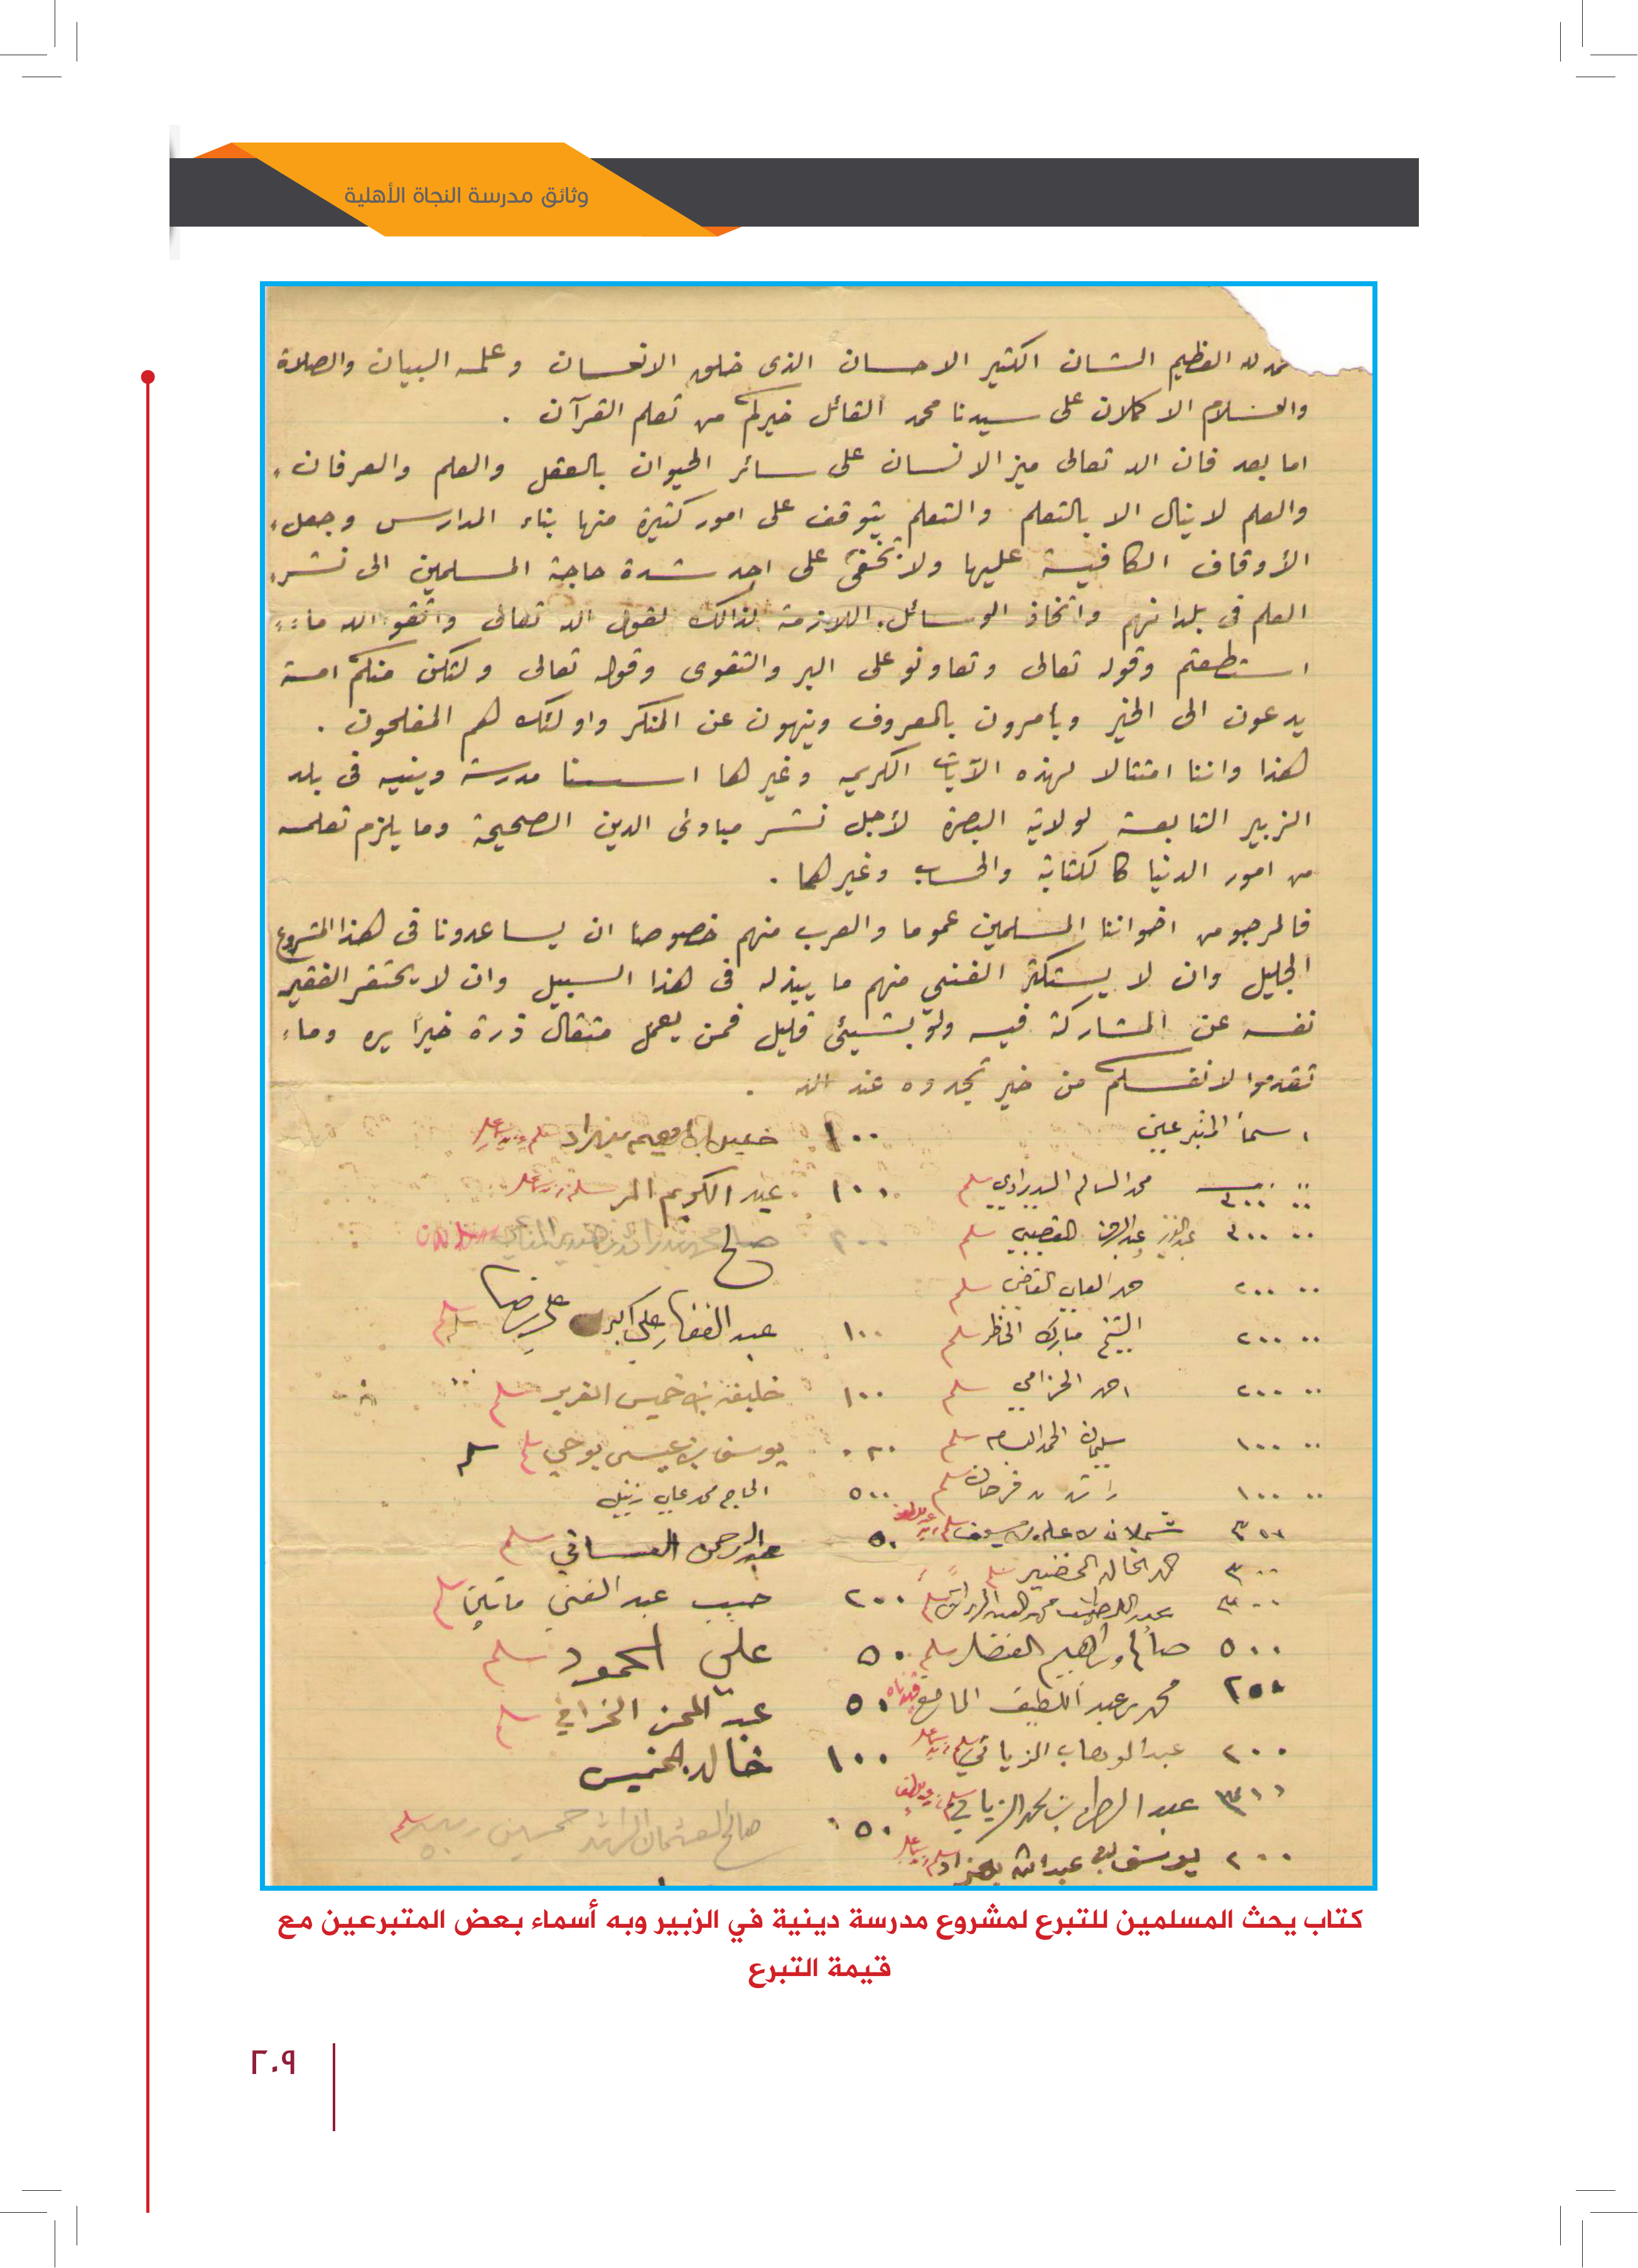 وثائق مدرسة النجاة الأهلية
لله العظيم الشان الكثير الاحسان الذى خلق الانسان وعلمه البيان والصلاة
والسلام الاكملان على سيدنا محمد القائل خيركم من تعلم القرآن .
اما بعد فان الله تعالى ميز الانسان على سائر الحيوان بالعقل والعلم والعرفان
والعلم لا ينال الا بالتعلم والتعلم يتوقف على امور كثيرة منها بناء المدارس وجعل
الأوقاف الكافية عليها ولا تخفى على احد شدة حاجة المسلمين الى نشر
العلم فى بلدانهم واتخاذ الوسائل اللازمة لذالك لقول الله تعالى واتقو الله ما
استطعتم وقوله تعالى وتعاونو على البر والتقوى وقوله تعالى ولتكن منكم امة
يدعون الى الخير ويأمرون بالمعروف وينهون عن المنكر واولئك هم المفلحون .
هذا واننا امتثالا لهذه الآيات الكريمه وغيرها اسسنا مدرسة دينيه فى بلد
الزبير التابعة لولاية البصرة لأجل نشر مبادئ الدين الصحيحة وما يلزم تعلمه
من امور الدنيا كالكتابة والحساب وغيرهما .
فالمرجو من اخواننا المسلمين عموما والعرب منهم خصوصا ان يساعدونا فى هذا المشروع
الجليل وان لا يستكثر الغني منهم ما يبذله فى هذا السبيل وان لا يحتقر الفقير
نفسه عن المشاركة فيه ولو بشيئ قليل فمن يعمل مثقال ذرة خيرا يره وما
تقدموا لانفسكم من خير تجدوه عند الله .
اسماء المتبرعين
١٠٠ عبد الكريم سلم
عبد الرحمن القصيبي سلم
٢٠٠ القاضي سلم
٢٠٠ الشيخ مبارك سلم
١٠٠ عبد الغفار علي اكبر علي رضا سلم
٢٠٠ احمد الخزامي سلم
١٠٠ خليفة بن خميس سلم
١٠٠ سليمان الحمد سلم
يوسف بن عيسى بوحجي سلم
١٠٠ فرحان سلم
٥٠٠ الحاج محمد علي زينل
شملان بن علي بن سيف سلم
٥٠ عبد الرحمن سلم
٣٠٠ حمد الخالد الخضير سلم
٢٠٠ حبيب عبد الغني سلم
٥٠٠ صالح وابراهيم الفضل سلم
٥٠ علي الحمود سلم
٢٥٠ محمد بن عبد اللطيف المانع
٥٠ عبد المحسن الخرافي سلم
٢٠٠ عبد الوهاب الزياني سلم
١٠٠ خالد الخميس
عبد الرحمن بن محمد الزياني سلم
٥٠ صالح العثمان الراشد سلم
٢٠٠ يوسف عبد الله سلم
كتاب يحث المسلمين للتبرع لمشروع مدرسة دينية في الزبير وبه أسماء بعض المتبرعين مع
قيمة التبرع
٢٠٩